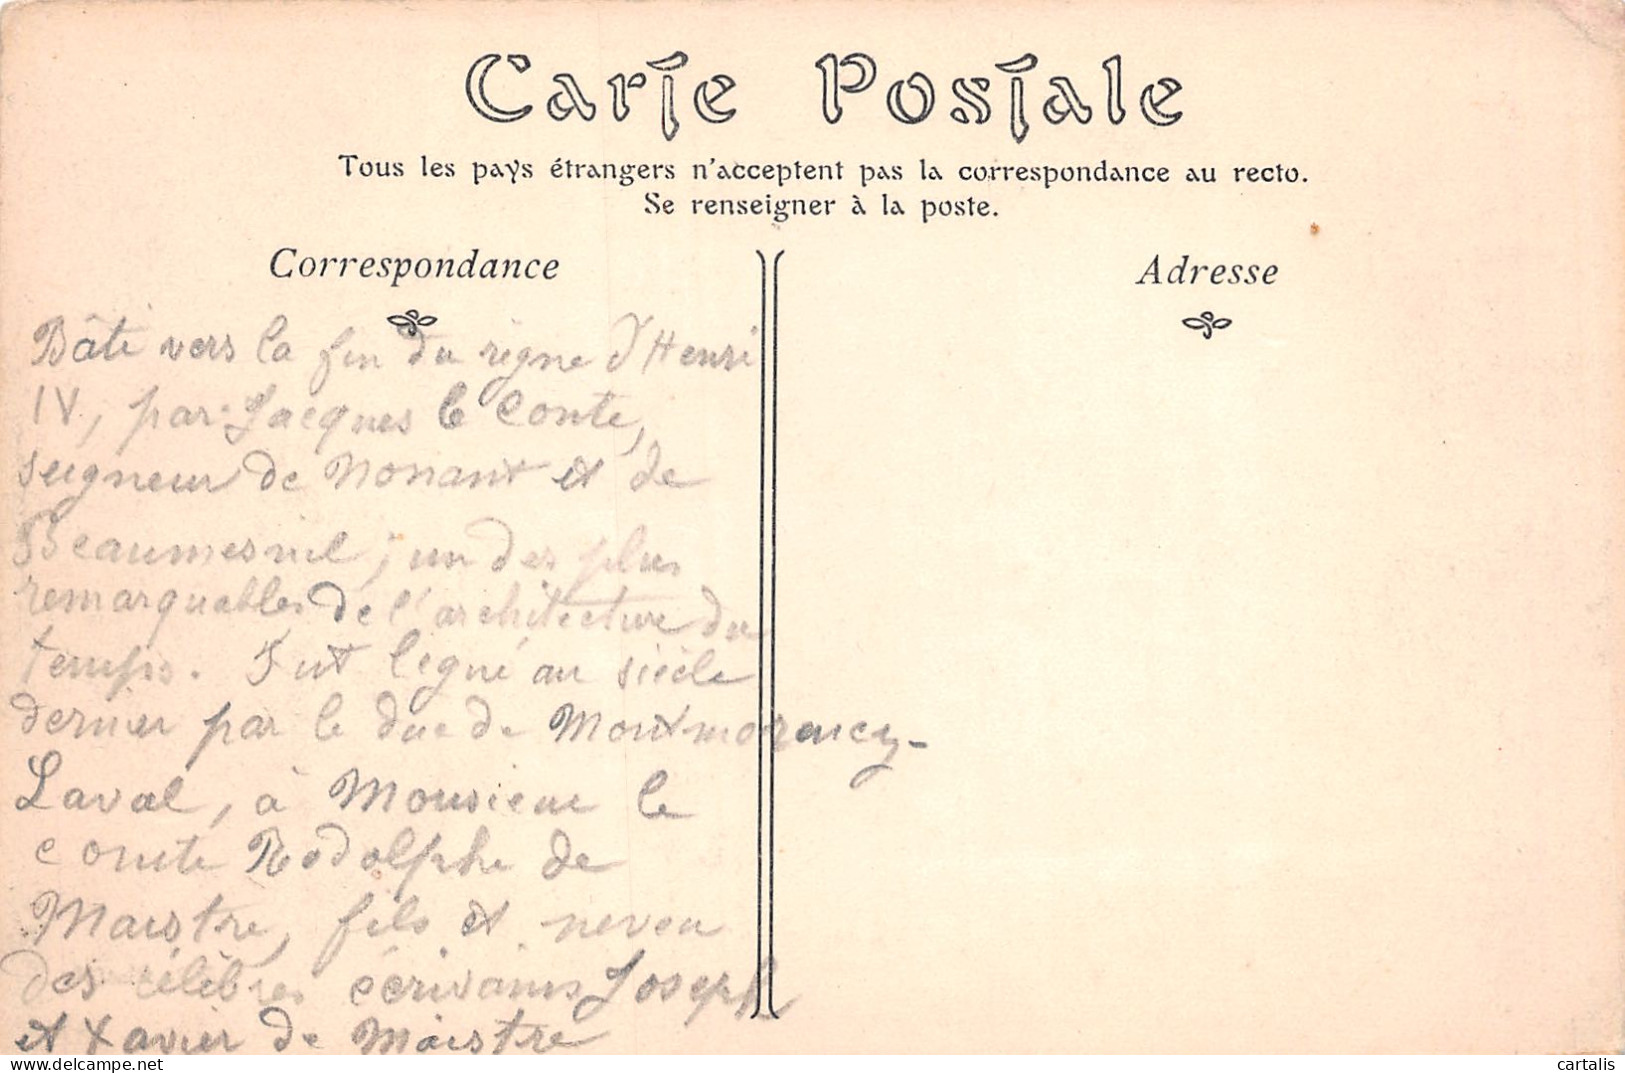 Carte Postale
Tous les pays étrangers n'acceptent pas la correspondance au recto.
Se renseigner à la poste.
Correspondance
Adresse
Bâti vers la fin du règne d'Henri
IV, par Jacques le Conte,
seigneur de Nonant et de
Beaumesnil; un des plus
remarquables de l'architecture du
temps. Fut légué au siècle
dernier par le duc de Montmorency-
Laval, à Monsieur le
comte Rodolphe de
Maistre, fils et neveu
des célèbres écrivains Joseph
et Xavier de Maistre
www.delcampe.net
cartalis